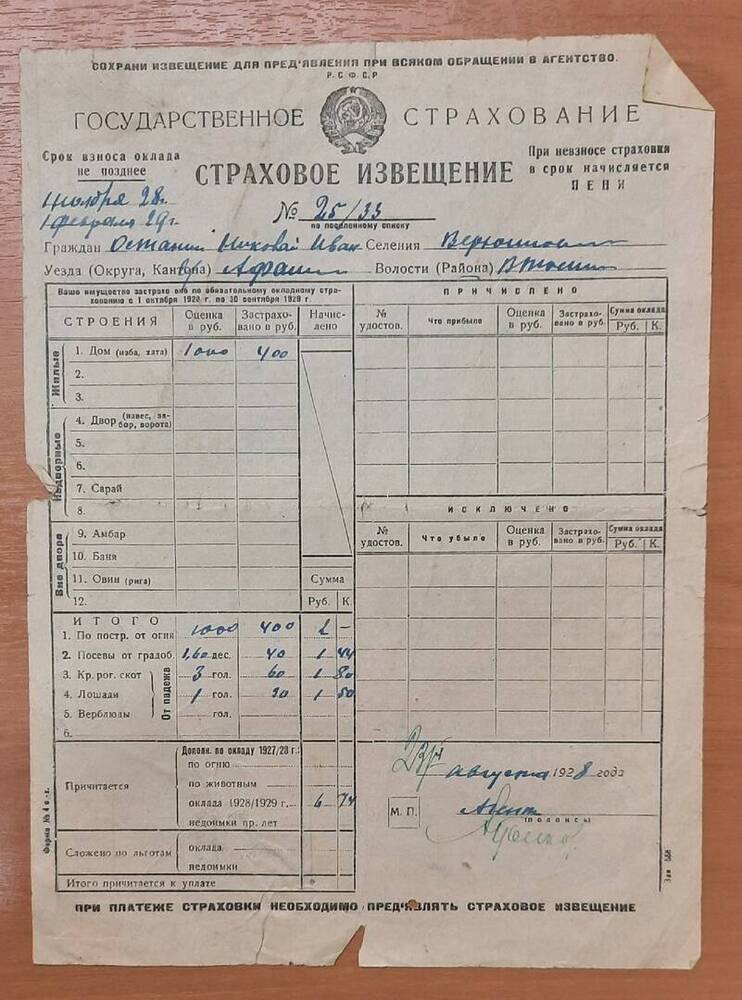 СОХРАНИ ИЗВЕЩЕНИЕ ДЛЯ ПРЕД'ЯВЛЕНИЯ ПРИ ВСЯКОМ ОБРАЩЕНИИ В АГЕНТСТВО.
Р.С.Ф.С.Р
ГОСУДАРСТВЕННОЕ СТРАХОВАНИЕ
Срок взноса оклада
не позднее
1 ноября 28 г.
1 февраля 29 г.
СТРАХОВОЕ ИЗВЕЩЕНИЕ
№ 25/33
по поселенному списку
При невзносе страховки
в срок начисляется
ПЕНИ
Граждан Николай Иван Селения
Уезда (Округа, Кантона) Волости (Района)
Ваше имущество застрахо вно по обязательному окладному стра-
хованию с 1 октября 1928 г. по 30 сентября 1929 г.
СТРОЕНИЯ Оценка в руб. Застрахо- вано в руб. Начис- лено
Жилые
1. Дом (изба, хата) 1000 400
2.
3.
Надворные
4. Двор (навес, за- бор, ворота)
5.
6.
7. Сарай
8.
Вне двора
9. Амбар
10. Баня
11. Овин (рига) Сумма
12. Руб. К.
ИТОГО
1. По постр. от огня 1000 400 2 —
2. Посевы от градоб. 1,60 дес. 40 1 44
От падежа
3. Кр. рог. скот 3 гол. 60 1 80
4. Лошади 1 гол. 30 1 50
5. Верблюды гол.
6.
Причитается
Дополн. по окладу 1927/28 г.:
по огню
по животным
оклада 1928/1929 г. 6 74
недоимки пр. лет
Сложено по льготам
оклада
недоимки
Итого причитается к уплате
Форма № 4 о.-с.
ПРИЧИСЛЕНО
№ удостов. Что прибыло Оценка в руб. Застрахо- вано в руб. Сумма оклада Руб. К.
ИСКЛЮЧЕНО
№ удостов. Что убыло Оценка в руб. Застрахо- вано в руб. Сумма оклада Руб. К.
августа 1928 года
М. П. Агент
(подпись)
ПРИ ПЛАТЕЖЕ СТРАХОВКИ НЕОБХОДИМО ПРЕД'ЯВЛЯТЬ СТРАХОВОЕ ИЗВЕЩЕНИЕ